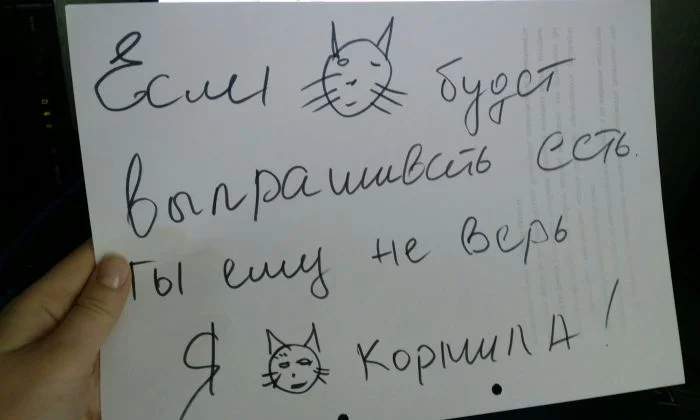 Если будет
выпрашивать есть.
ты ему не верь
Я кормила!